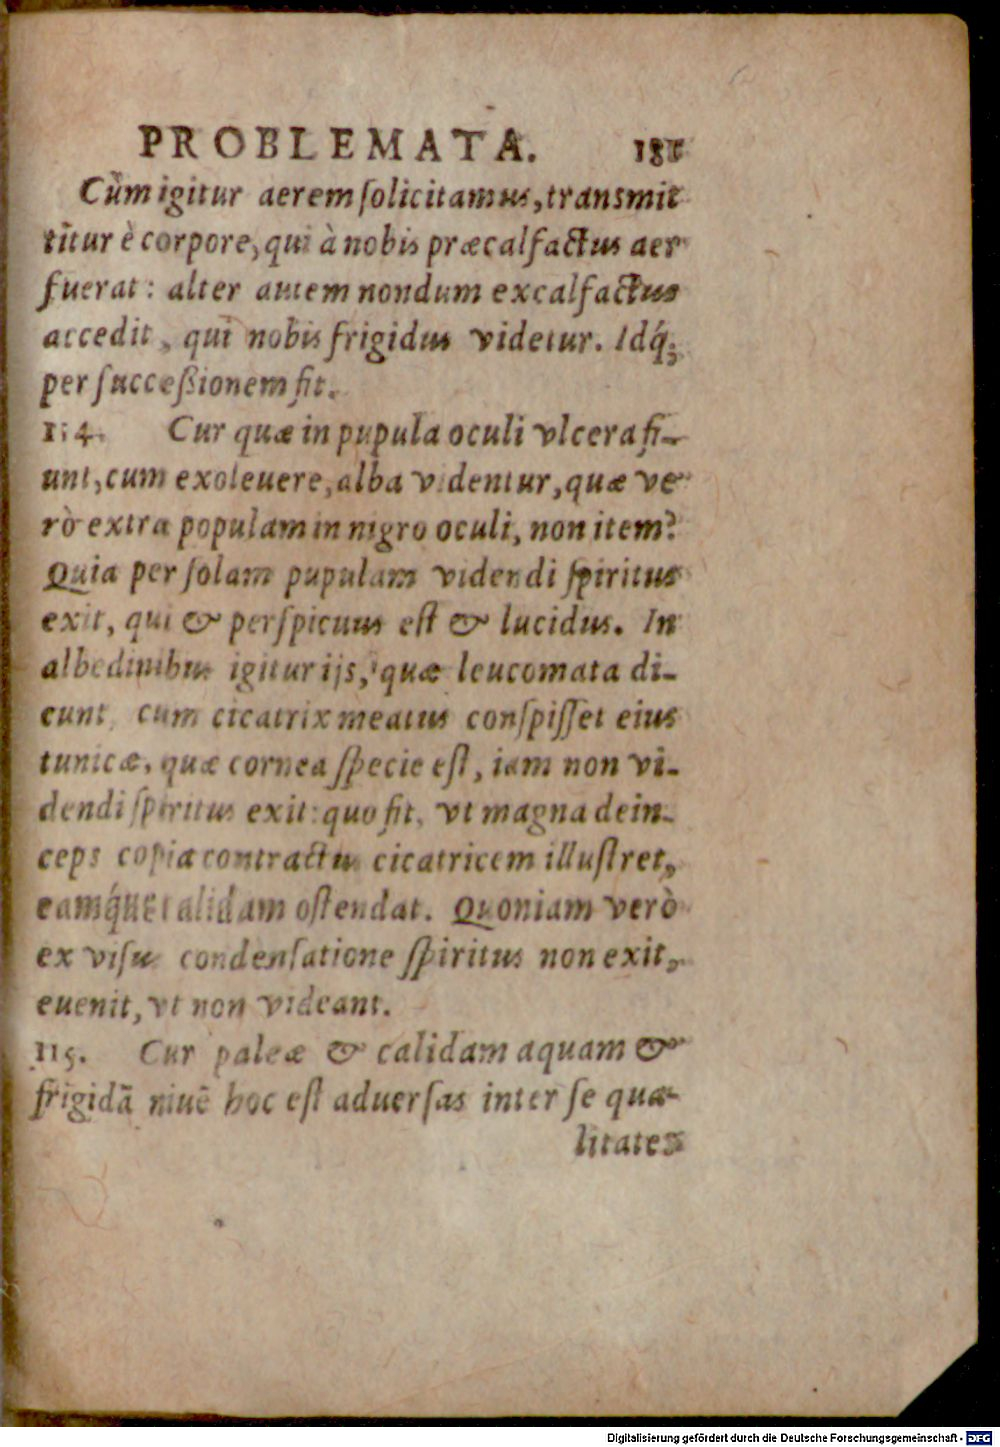 PROBLEMATA. 181
Cùm igitur aerem ſolicitamus, transmit
titur è corpore, qui à nobis præcalfactus aer
fuerat: alter autem nondum excalfactus
accedit, qui nobis frigidus videtur. Idq́;
per ſucceßionem fit.
114. Cur quæ in pupula oculi vlcera fi-
unt, cum exoleuere, alba videntur, quæ ve
rò extra populam in nigro oculi, non item?
Quia per ſolam pupulam videndi ſpiritus
exit, qui & perſpicuus eſt & lucidus. In
albedinibus igitur ijs, quæ leucomata di-
cunt, cum cicatrix meatus conſpiſſet eius
tunicæ, quæ cornea ſpecie eſt, iam non vi-
dendi ſpiritus exit: quo fit, vt magna dein-
ceps copia contractus cicatricem illuſtret,
eamq́ue validam oſtendat. Quoniam verò
ex viſus condenſatione ſpiritus non exit,
euenit, vt non videant.
115. Cur paleæ & calidam aquam &
frigidā niuē hoc eſt aduerſas inter ſe qua-
litates
Digitalisierung gefördert durch die Deutsche Forschungsgemeinschaft - DFG